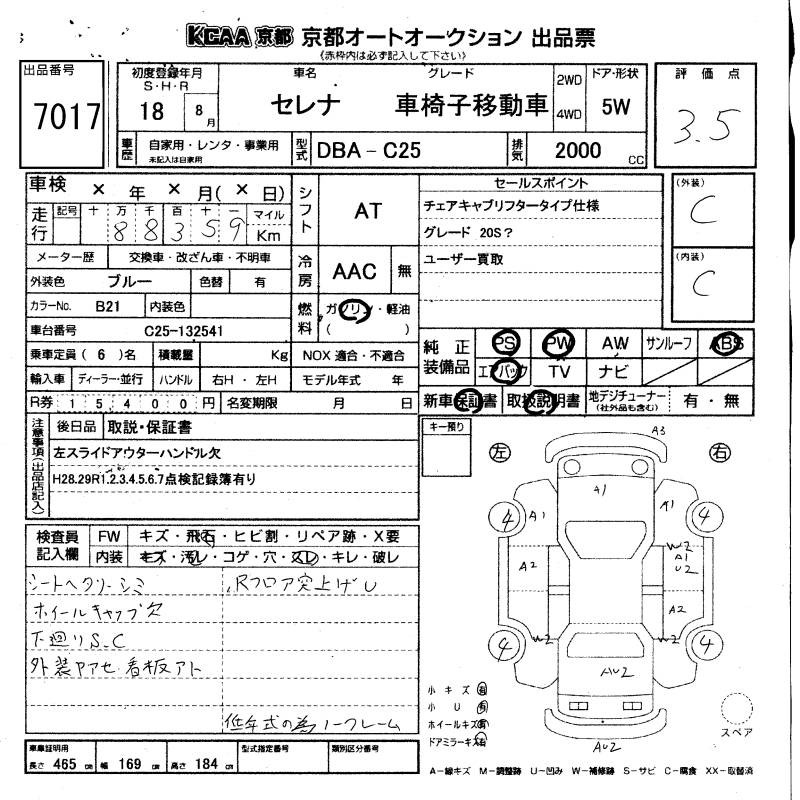 KCAA 京都 京都オートオークション 出品票
《赤枠内は必ず記入して下さい》
出品番号
7017
初度登録年月
S・H・R
18 8月
車名
セレナ
グレード
車椅子移動車
2WD
4WD
ドア・形状
5W
評価点
3.5
車歴
自家用・レンタ・事業用
未記入は自家用
型式
DBA-C25
排気
2000 CC
車検 × 年 × 月( × 日)
走行
記号 十 万 千 百 十 一 マイル
8 8 3 5 9 Km
メーター歴 交換車・改ざん車・不明車
外装色 ブルー 色替 有
カラーNo. B21 内装色
車台番号 C25-132541
乗車定員 ( 6 ) 名 積載量 Kg
輸入車 ディーラー・並行 ハンドル 右H・左H
R券 15400円 名変期限 月 日
シフト AT
冷房 AAC 無
燃料 ガソリン・軽油
( )
NOX 適合・不適合
モデル年式 年
セールスポイント
チェアキャブリフタータイプ仕様
グレード 20S?
ユーザー買取
(外装)
C
(内装)
C
純正装備品
PS PW AW サンルーフ ABS
エアバック TV ナビ
新車保証書 取扱説明書 地デジチューナー (社外品も含む) 有・無
注意事項(出品店記入)
後日品 取説・保証書
左スライドアウターハンドル欠
H28.29R1.2.3.4.5.6.7点検記録簿有り
キー預り
検査員記入欄
FW キズ・飛石・ヒビ割・リペア跡・X要
内装 キズ・汚レ・コゲ・穴・スレ・キレ・破レ
シートヘタリーシミ
ホイールキャップ欠
下廻りS.C
外装ヤケセ 看板アト
Rフロア突上げU
低年式の為ノークレーム
車庫証明用
長さ 465 cm 幅 169 cm 高さ 184 cm
型式指定番号
類別区分番号
左 右
A3
A1
4 A1 A1 4
W2
A1
U2
A2
A2
4 W2 W2 4
AU2
AU2
小キズ 有
小U 有
ホイールキズ 有
ドアミラーキズ 有
スペア
A-線キズ M-調整跡 U-凹み W-補修跡 S-サビ C-腐食 XX-取替済